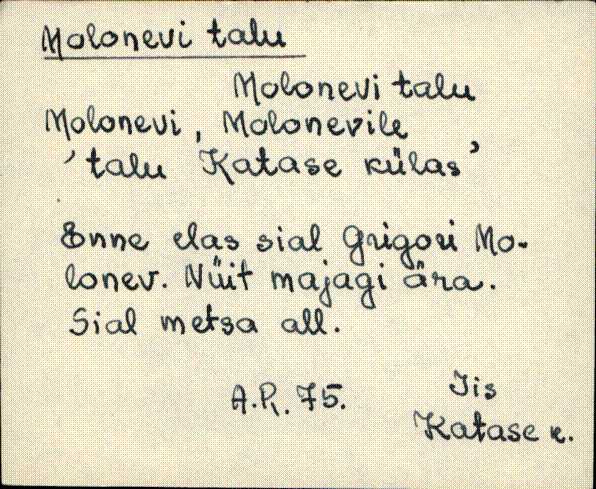 Molonevi talu
Molonevi talu
Molonevi, Molonevile
'talu Katase külas'
Enne elas sial Grigori Mo-
lonev. Nüit majagi ära.
Sial metsa all.
A.R. 75. Iis
Katase k.